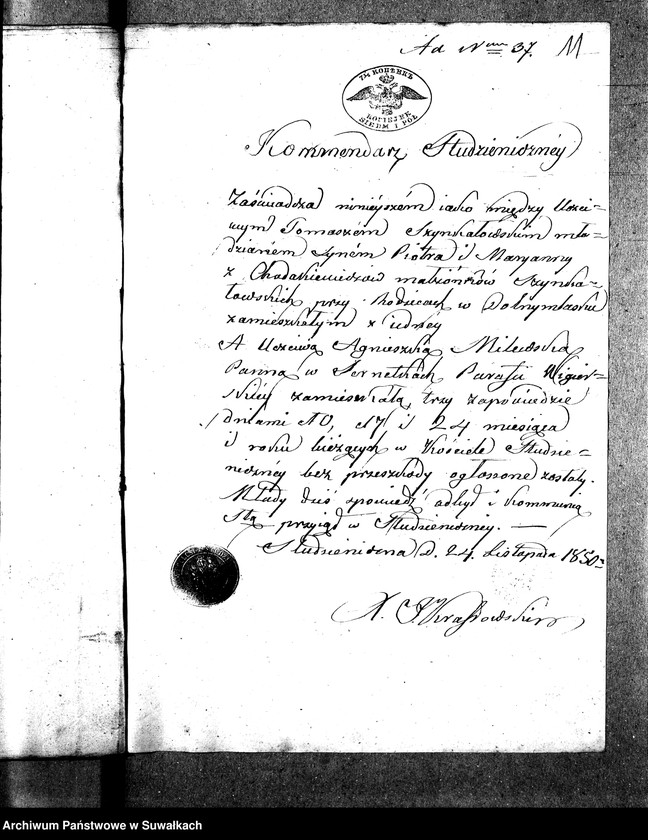 Ad Num 37. 11
7½ КОПѢЕКЪ
KOPIEJEK
SIEDM I PÓŁ
Kommendarz Studzieniczney
Zaświadcza ninieyszém iako między Uczci=
wym Tomaszem Szynkałowskim mło=
dzianem Synem Piotra i Maryanny
z Chodakiewiczow małżonków Szynka=
łowskich przy Rodzicach w Dolnymlasku
zamieszkałym z iedney
A Uczciwą Agnieszką Milewską
Panną w Sernetkach Parafii Wigier=
skiey zamieszkałą, trzy zapowiedzie
dniami 10, 17 i 24 miesiąca
i roku bieżących w Kościele Studzie=
niczney bez przeszkody ogłoszone zostały.
Młody dziś spowiedź odbył i Kommunią
Stą przyiął w Studzieniczney. —
Studzieniczna D. 24 Listopada 1850
X. Krassowski
Archiwum Państwowe w Suwałkach